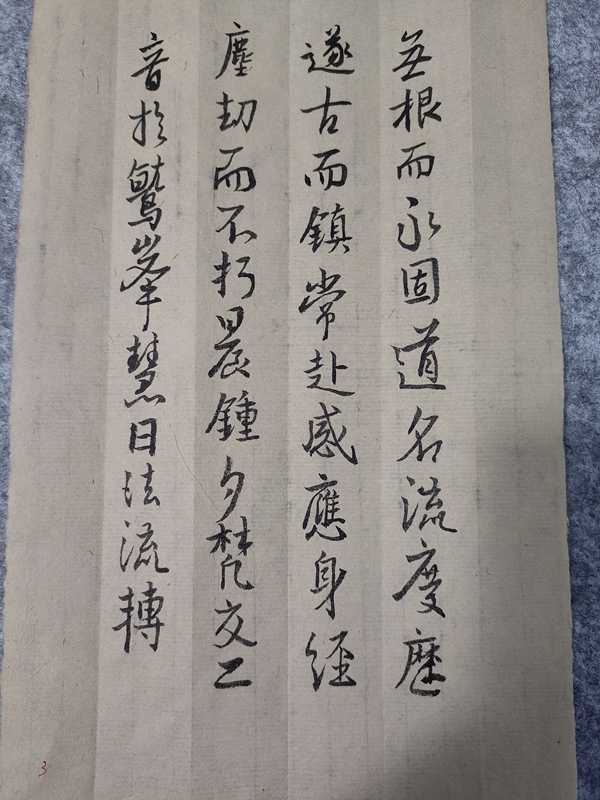 無根而永固道名流慶歷
遂古而鎮常赴感應身經
塵劫而不朽晨鍾夕梵交二
音於鷲峯慧日法流轉
3